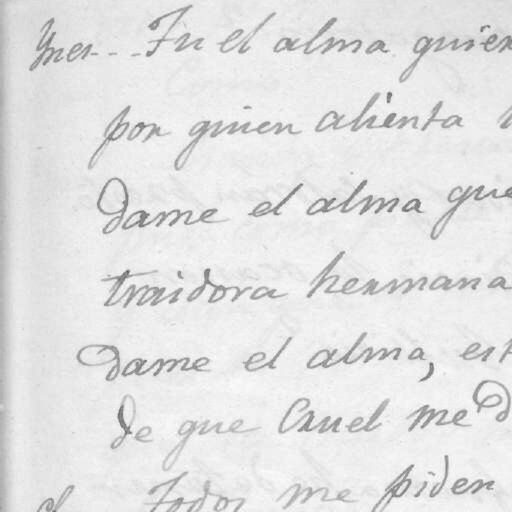 Ynes - - Tu el alma quien
por quien alienta
dame el alma que
traidora hermana
dame el alma, est
de que Cruel me d
Todos me piden